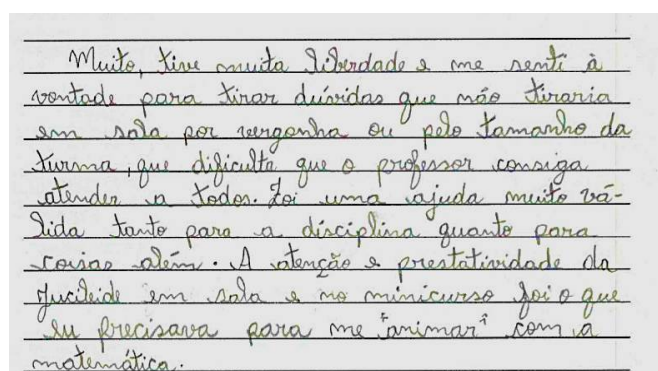 Muito, tive muita liberdade e me senti à
vontade para tirar dúvidas que não tiraria
em sala por vergonha ou pelo tamanho da
turma, que dificulta que o professor consiga
atender a todos. Foi uma ajuda muito vá-
lida tanto para a disciplina quanto para
coisas além. A atenção e prestatividade da
Jucileide em sala e no minicurso foi o que
eu precisava para me "animar" com a
matemática.